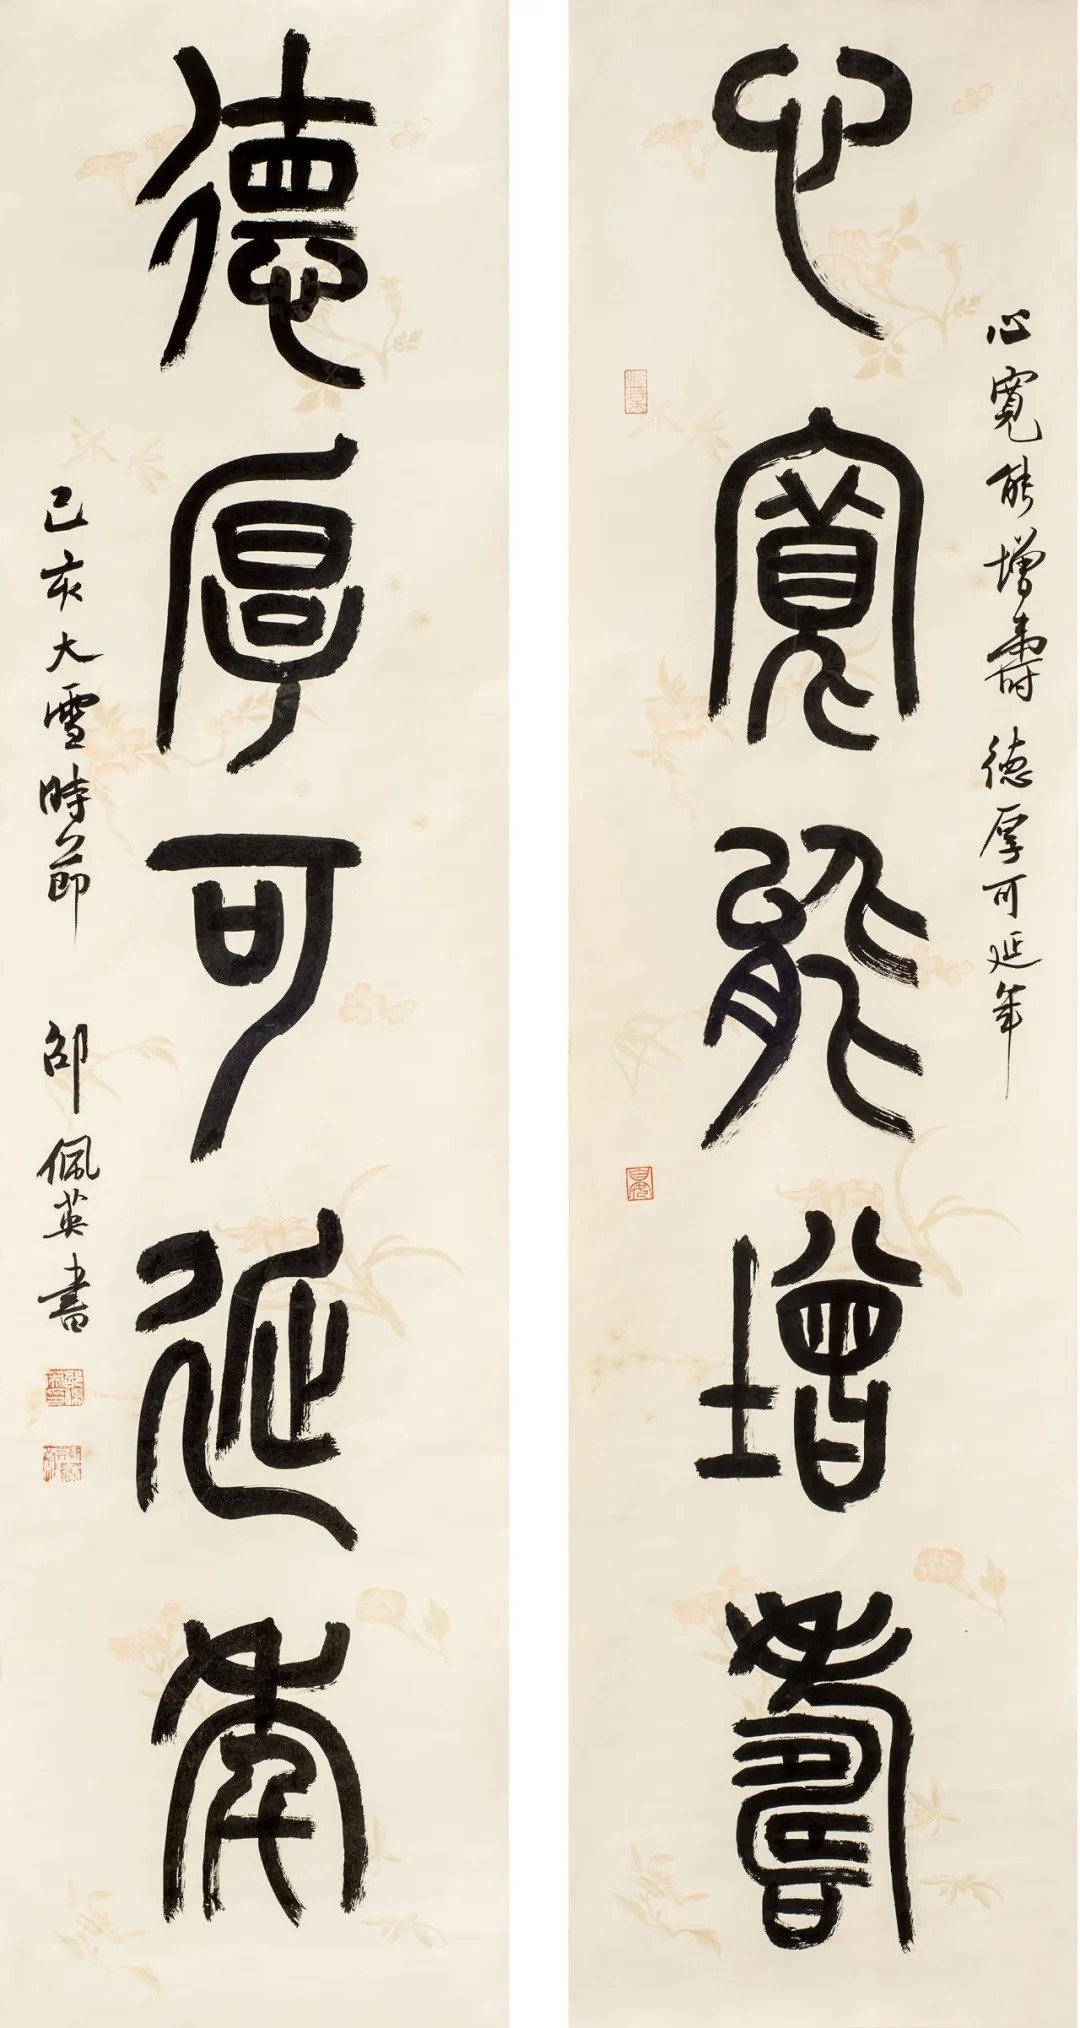 心寬能增壽
心寬能增壽 德厚可延年
德厚可延年
己亥大雪時節 邵佩英書